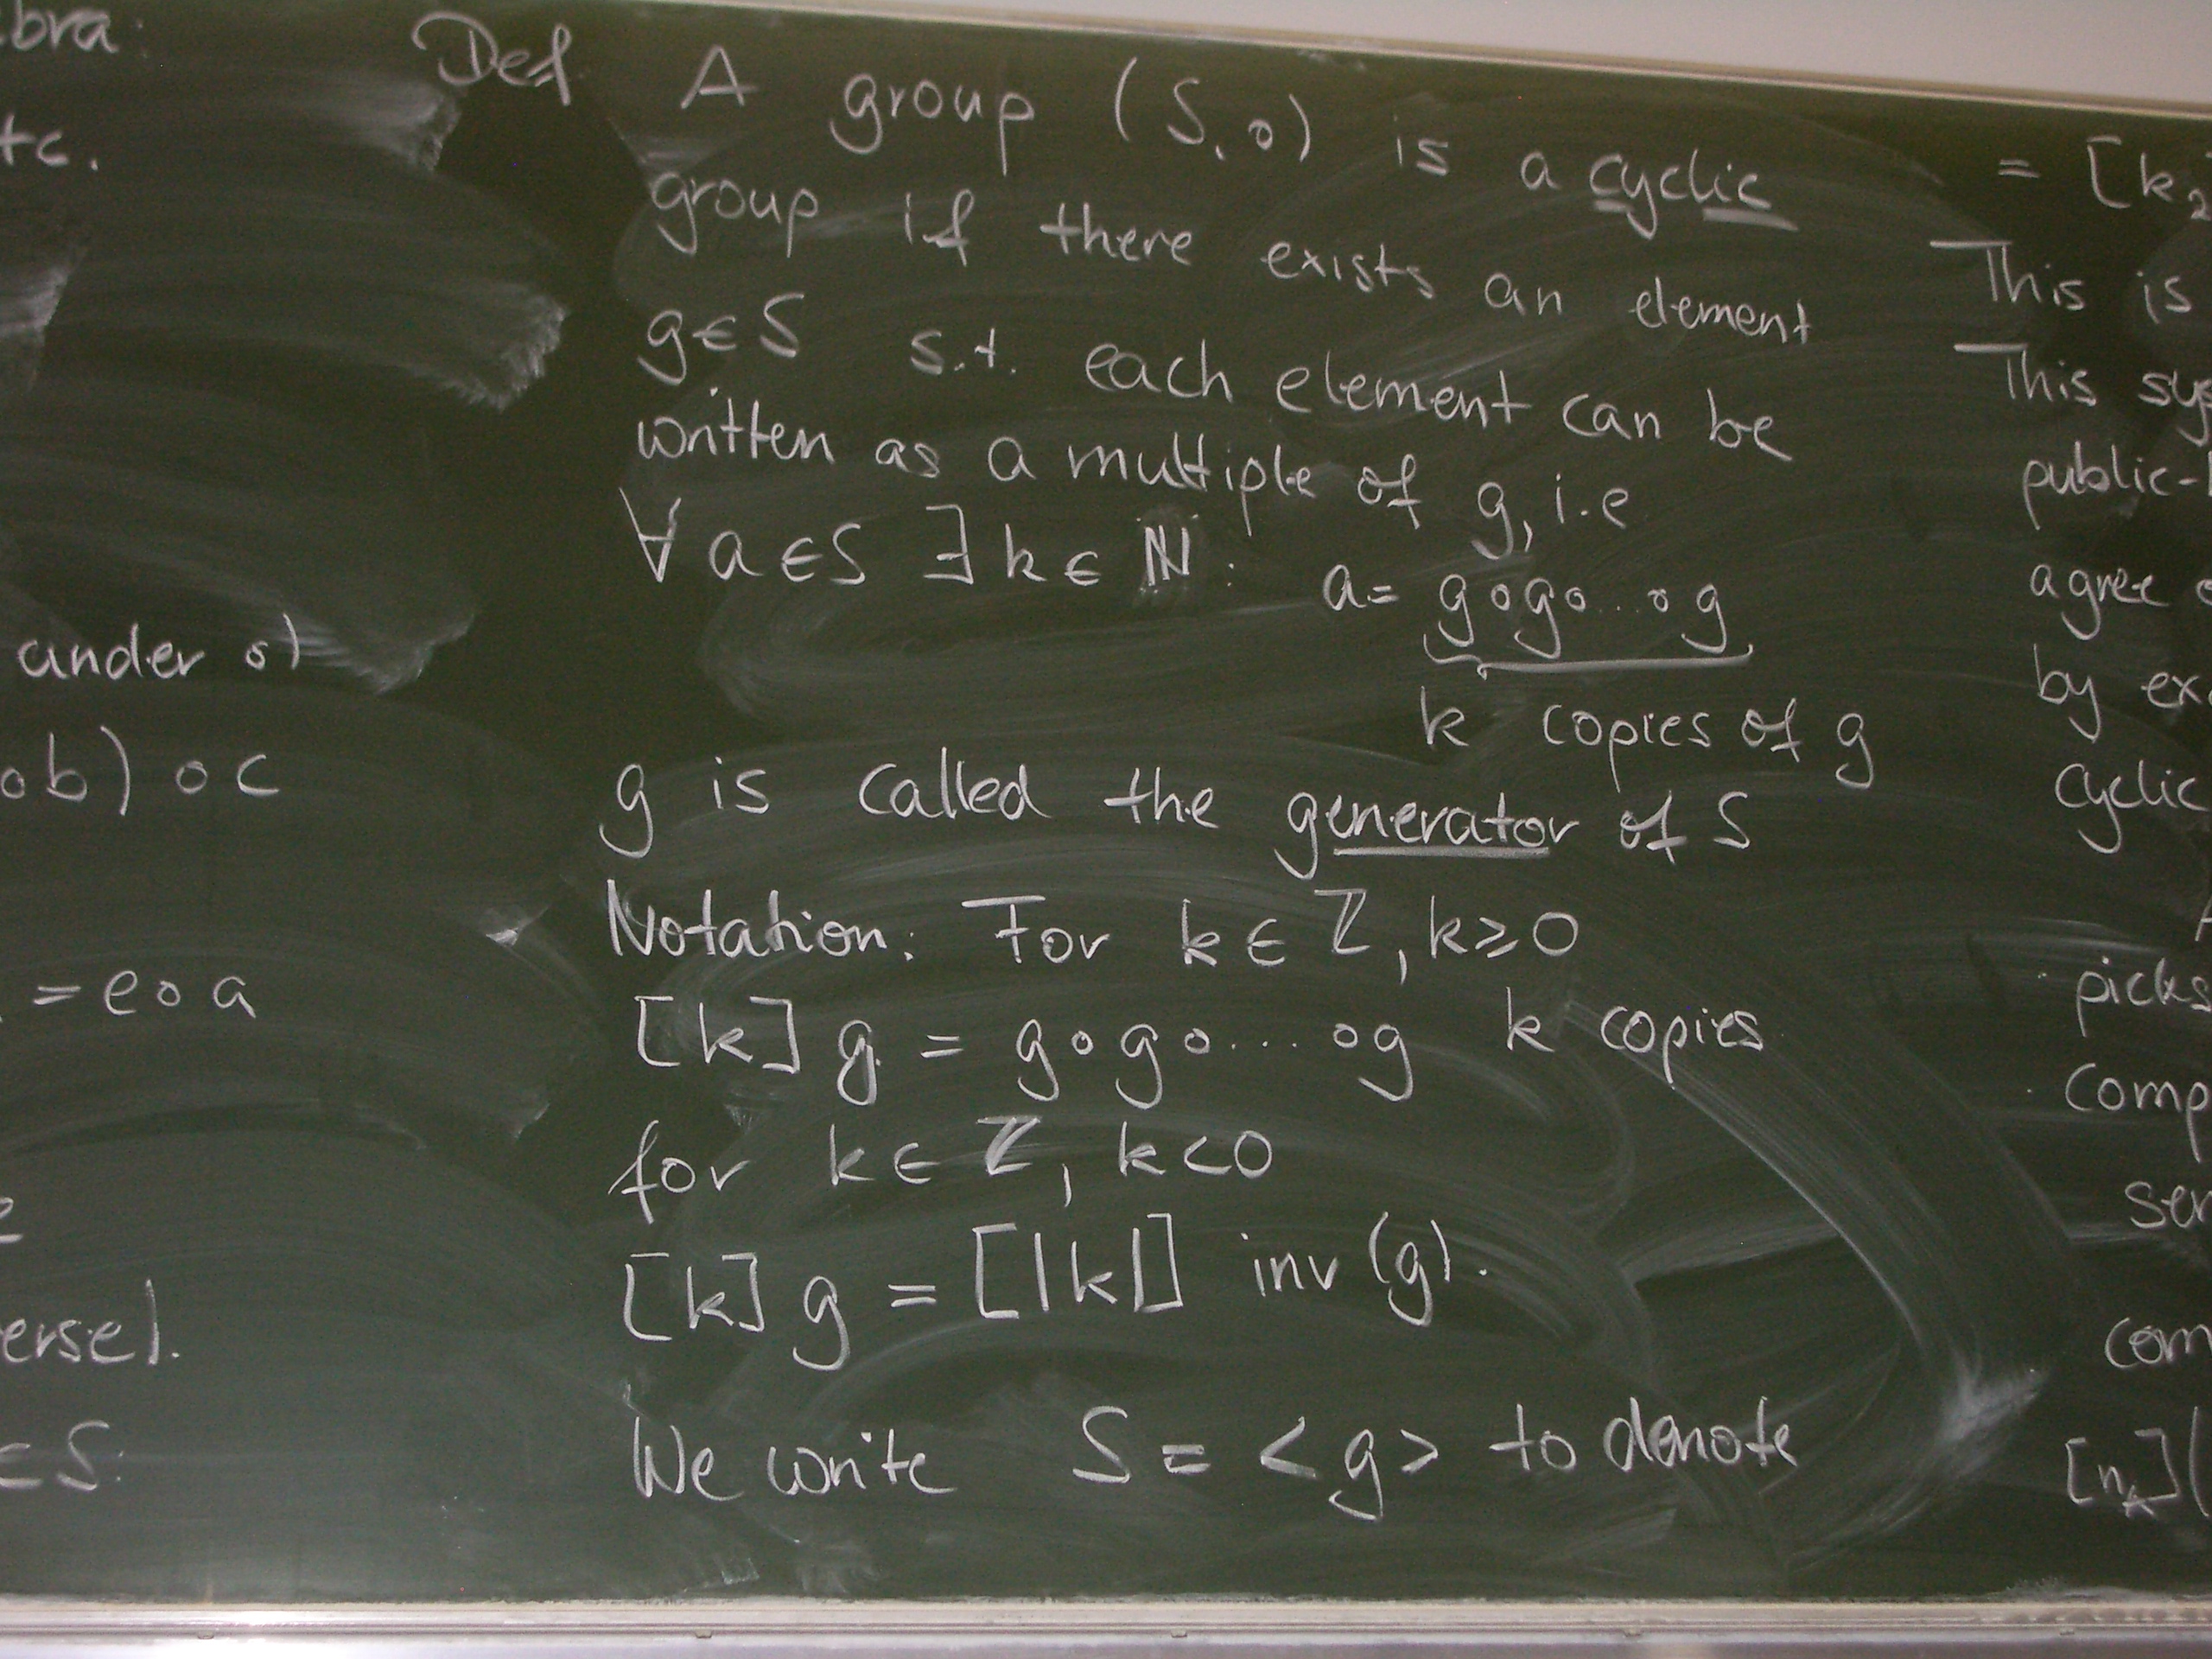 bra:
tc.
under o)
ob) o c
= e o a
erse).
∈ S:
Def A group (S, o) is a cyclic
group if there exists an element
g ∈ S s.t. each element can be
written as a multiple of g, i.e
∀ a ∈ S ∃ k ∈ ℕ: a = g o g o ... o g
k copies of g
g is called the generator of S
Notation: For k ∈ ℤ, k ≥ 0
[k] g = g o g o ... o g k copies
for k ∈ ℤ, k < 0
[k] g = [|k|] inv (g).
We write S = <g> to denote
= [k₂
This is
This sys
public-k
agree o
by ex
cyclic
picks
comp
sen
com
[n_A] (